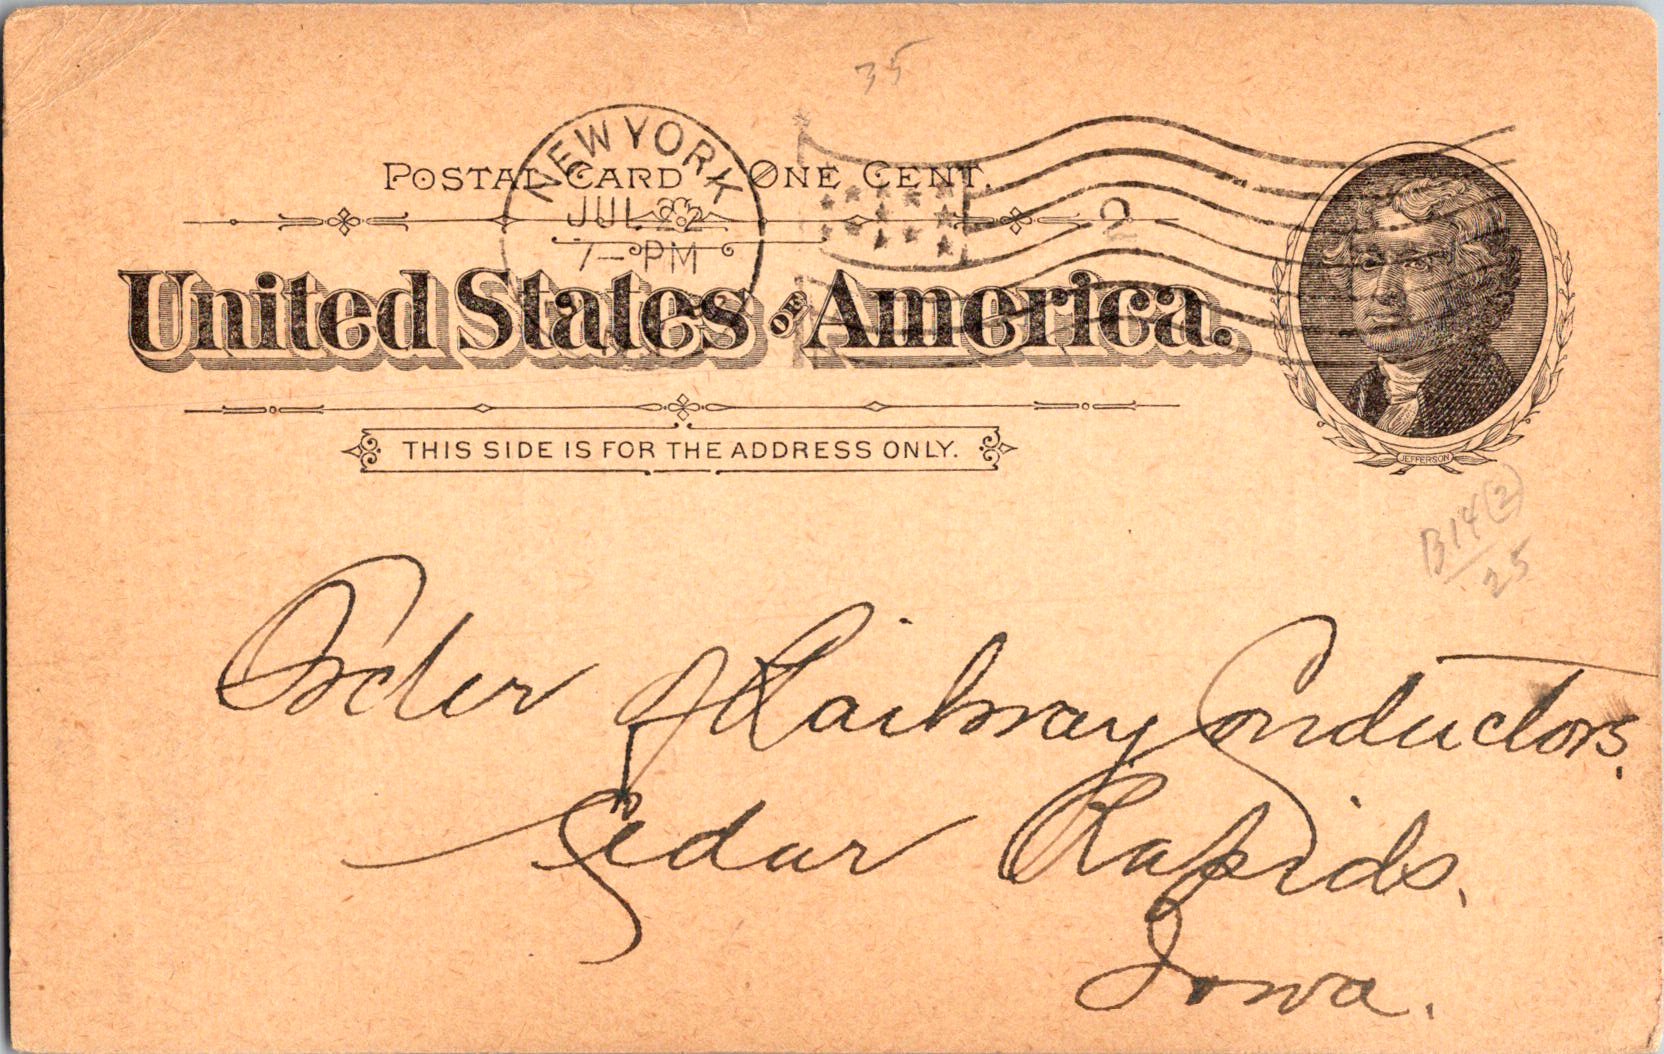 35
NEW YORK
JUL 22
7-PM
POSTAL CARD ONE CENT.
2
United States OF America.
JEFFERSON
THIS SIDE IS FOR THE ADDRESS ONLY.
B14(2)
25
Order of Railway Conductors.
Cedar Rapids.
Iowa.